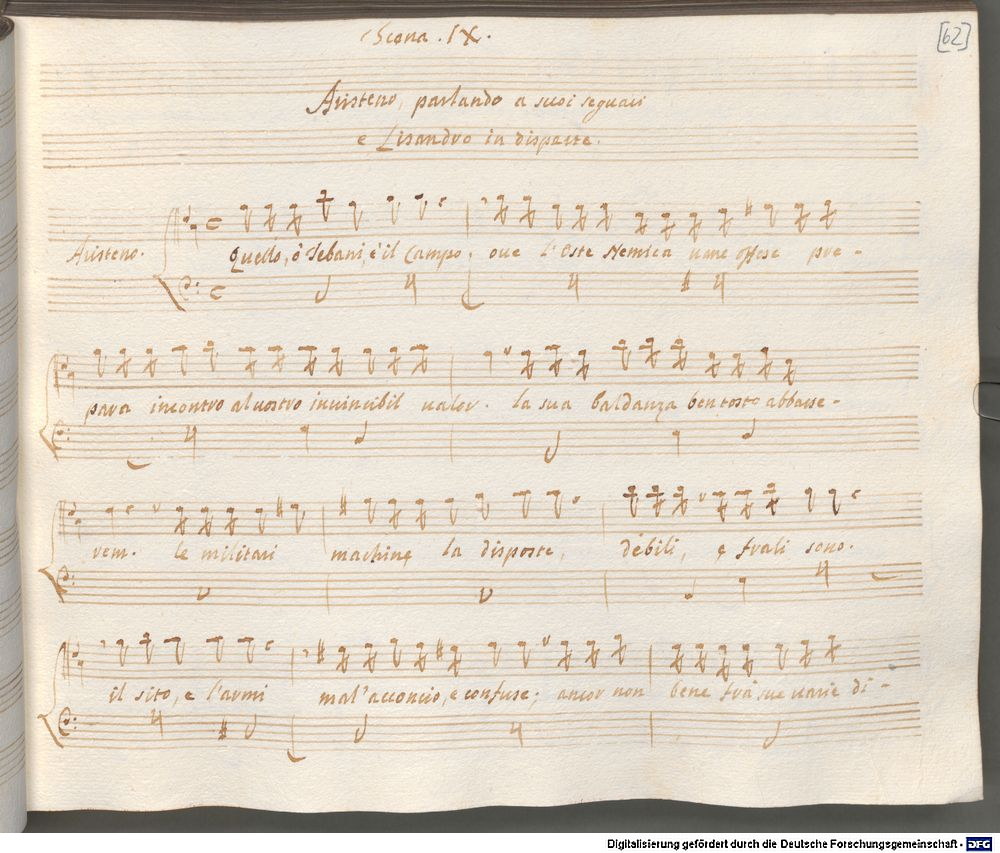 [62]
Scena. IX.
Aristeno, parlando a suoi seguaci
e Lisandro in disparte.
Aristeno.
Quello, ò Tebani, è il Campo, oue l'Oste Nemica uane offese pre-
para incontro al uostro inuincibil ualor. la sua baldanza ben tosto abbasse-
rem. le militari machine la disposte, debili, e frali sono.
il sito, e l'armi mal'acconcio, e confuse; ancor non bene frà sue uarie di-
Digitalisierung gefördert durch die Deutsche Forschungsgemeinschaft - DFG